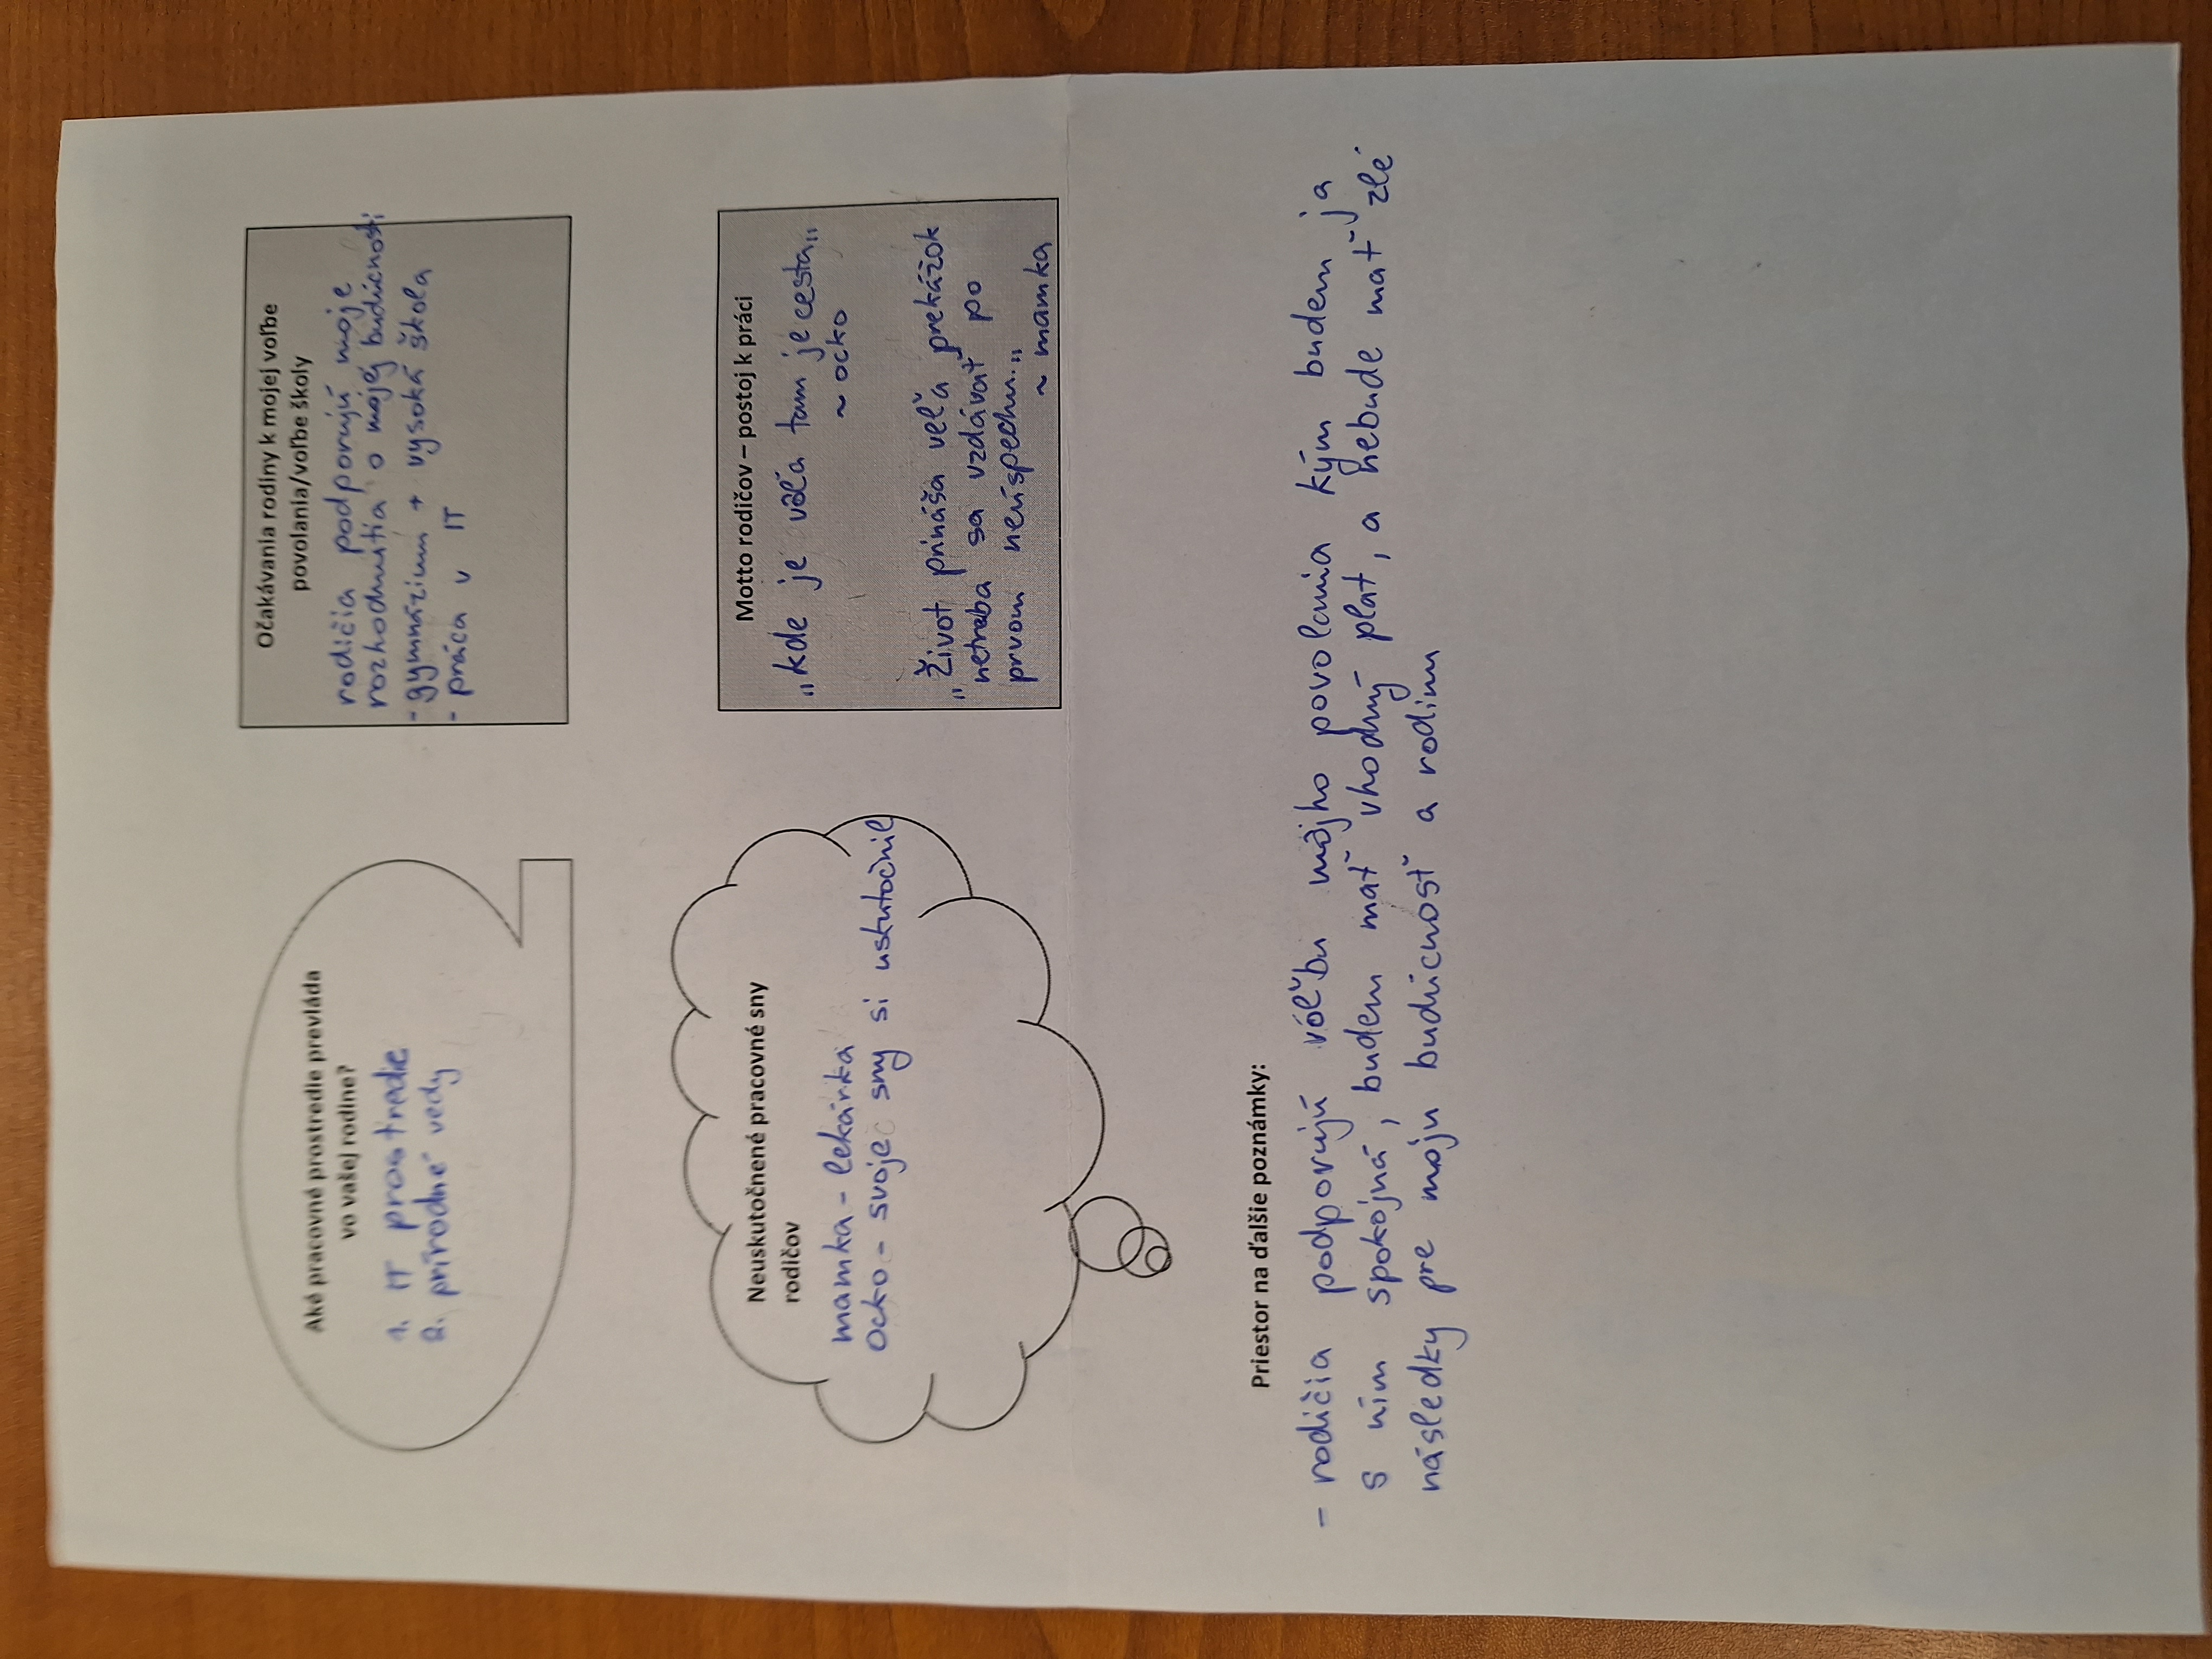 Aké pracovné prostredie prevláda
vo vašej rodine?
1. IT prostredie
2. prírodné vedy
Očakávania rodiny k mojej voľbe
povolania/voľbe školy
rodičia podporujú moje
rozhodnutia o mojej budúcnosti
- gymnázium + vysoká škola
- práca v IT
Neuskutočnené pracovné sny
rodičov
mamka - lekárka
Ocko - svoje sny si uskutočnil
Motto rodičov – postoj k práci
„kde je vôľa tam je cesta„
~ ocko
„Život prináša veľa prekážok
netreba sa vzdávať po
prvom neúspechu„
~ mamka
Priestor na ďalšie poznámky:
- rodičia podporujú vóľbu môjho povolania kým budem ja
s ním spokojná, budem mať vhodný plat, a nebude mať zlé
následky pre moju budúcnosť a rodinu